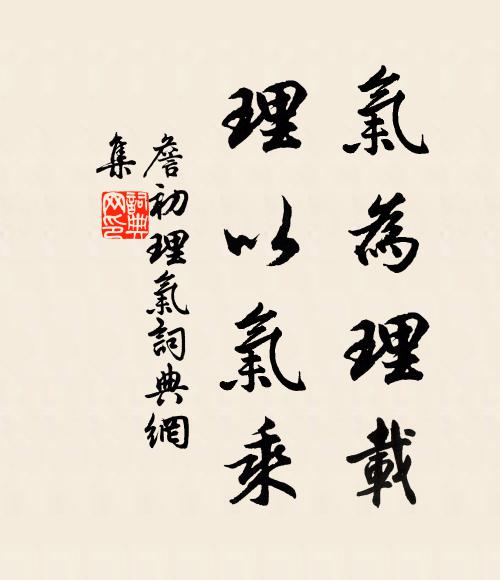 氣為理載
理以氣乘
詹初理氣詞典網
集
詞典
网印